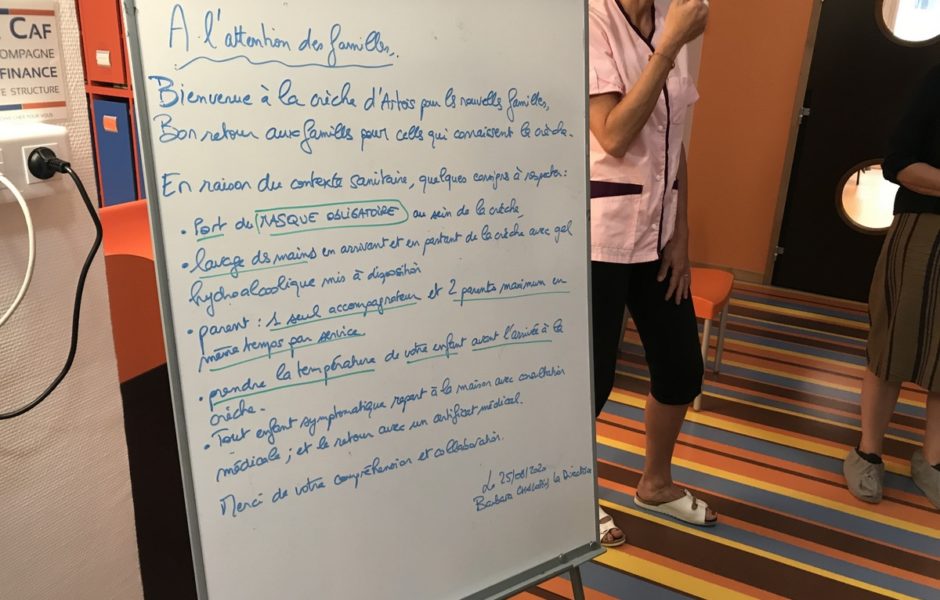 CAF
COMPAGNE
FINANCE
E STRUCTURE
A l'attention des familles.
Bienvenue à la crèche d'Artois pour les nouvelles familles,
Bon retour aux familles pour celles qui connaissent la crèche.
En raison du contexte sanitaire, quelques consignes à respecter :
• Port du MASQUE OBLIGATOIRE au sein de la crèche
• lavage des mains en arrivant et en partant de la crèche avec gel
hydroalcoolique mis à disposition
• parent : 1 seul accompagnateur et 2 parents maximum en
même temps par service
• prendre la température de votre enfant avant l'arrivée à la
crèche.
• Tout enfant symptomatique repart à la maison avec consultation
médicale ; et le retour avec un certificat médical.
Merci de votre compréhension et collaboration.
Le 25/08/2020
Barbara la Directrice